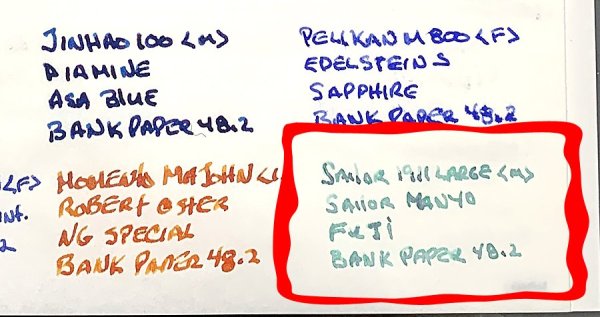 JINHAO 100 <M>
DIAMINE
ASA BLUE
BANK PAPER 48.2
PELIKAN M800 <F>
EDELSTEIN S
SAPPHIRE
BANK PAPER 48.2
<F>
INT.
2
MAJOHN
ROBERT OSTER
NG SPECIAL
BANK PAPER 48.2
SAILOR 1911 LARGE <M>
SAILOR MANYO
FUJI
BANK PAPER 48.2